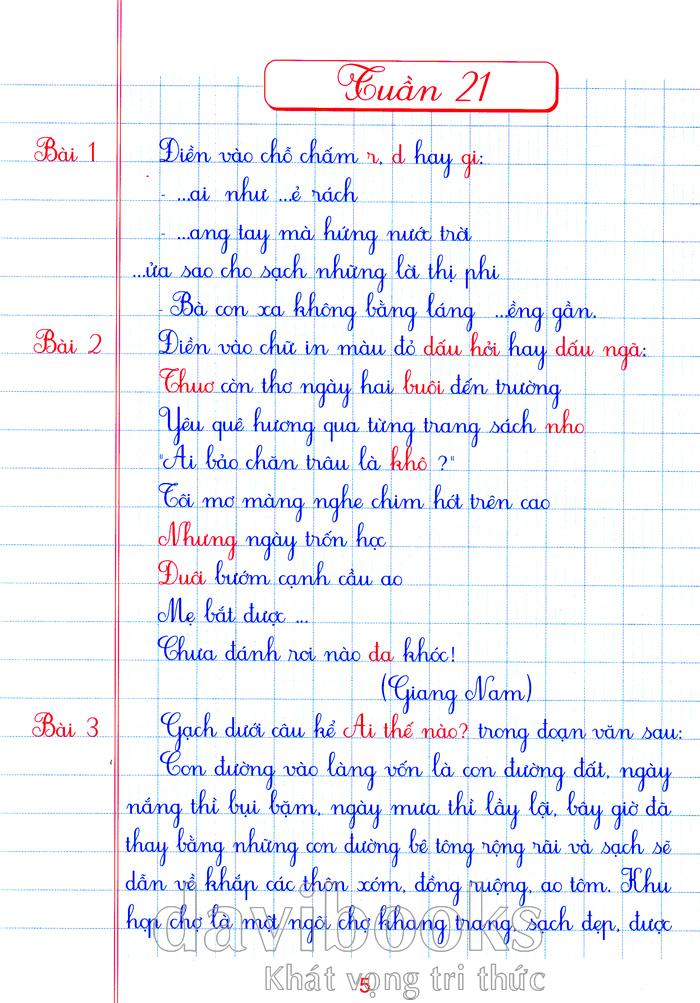 Tuần 21
Bài 1 Điền vào chỗ chấm r, d hay gi:
- ...ai như ...ẻ rách
- ...ang tay mà hứng nước trời
...ửa sao cho sạch những lời thị phi
- Bà con xa không bằng láng ...ềng gần.
Bài 2 Điền vào chữ in màu đỏ dấu hỏi hay dấu ngã:
Thuơ còn thơ ngày hai buôi đến trường
Yêu quê hương qua từng trang sách nho
"Ai bảo chăn trâu là khô ?"
Tôi mơ màng nghe chim hót trên cao
Nhưng ngày trốn học
Đuôi bướm cạnh cầu ao
Mẹ bắt được ...
Chưa đánh roi nào đa khóc!
(Giang Nam)
Bài 3 Gạch dưới câu kể Ai thế nào? trong đoạn văn sau:
Con đường vào làng vốn là con đường đất, ngày
nắng thì bụi bặm, ngày mưa thì lầy lội, bây giờ đã
thay bằng những con đường bê tông rộng rãi và sạch sẽ
dẫn về khắp các thôn xóm, đồng ruộng, ao tôm. Khu
họp chợ là một ngôi chợ khang trang, sạch đẹp, được
davibooks
Khát vọng tri thức
5